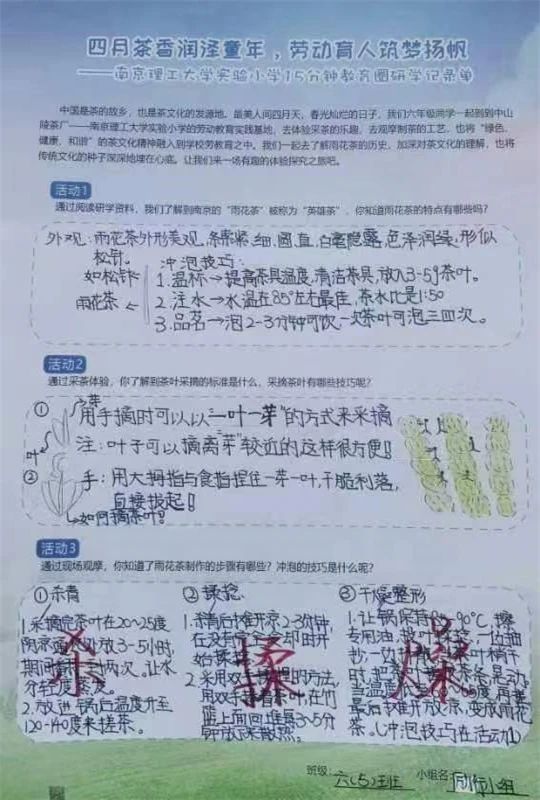 四月茶香润泽童年，劳动育人筑梦扬帆
——南京理工大学实验小学15分钟教育圈研学记录单
中国是茶的故乡，也是茶文化的发源地。最美人间四月天，春光灿烂的日子，我们六年级同学一起到到中山
陵茶厂——南京理工大学实验小学的劳动教育实践基地，去体验采茶的乐趣，去观摩制茶的工艺，也将“绿色、
健康、和谐”的茶文化精神融入到学校劳教育之中。我们一起去了解雨花茶的历史，加深对茶文化的理解，也将
传统文化的种子深深地埋在心底。让我们来一场有趣的体验探究之旅吧。
活动1
通过阅读研学资料，我们了解到南京的“雨花茶”被称为“英雄茶”，你知道雨花茶的特点有哪些吗？
外观：雨花茶外形美观，条索紧、细、圆、直，白毫隐露，色泽润绿，形似
松针。
冲泡技巧：
如松针
雨花茶
1.温杯→提高茶具温度，清洁茶具，放入3-5g茶叶。
2.注水→水温在85°左右最佳，茶水比是1:50
3.品茗→泡2-3分钟可饮，一次茶叶可泡三四次。
活动2
通过采茶体验，你了解到茶叶采摘的标准是什么，采摘茶叶有哪些技巧呢？
芽
① 用手摘时可以以“一叶一芽”的方式来采摘
注：叶子可以摘离“芽”较近的这样很方便！
叶
② 手：用大拇指与食指捏住一芽一叶，干脆利落，
直接拔起！
如何摘茶叶？
活动3
通过现场观摩，你知道了雨花茶制作的步骤有哪些？冲泡的技巧是什么呢？
①杀青
1.采摘完茶叶在20~25度
阴凉 处放3-5小时，
期间 两次，让水
分轻度蒸发。
2.放进锅后温度升至
120-140度来搓茶。
杀
②揉捻
1.杀青后摊开凉2-3分钟，
在没有完全 却时开
始揉
2.采用双 的方法，
用双手 着茶叶，在竹
匾上面回 堆每3~5分
钟放 来散热。
揉
③干燥整形
1.让锅保持85~90℃，擦
专用油，
抄，一边 叶稍干
时，
当温度
最后 开放凉，变成雨花
茶。（冲泡技巧在活动1）
燥
班级：六（5）班 小组名： 小组